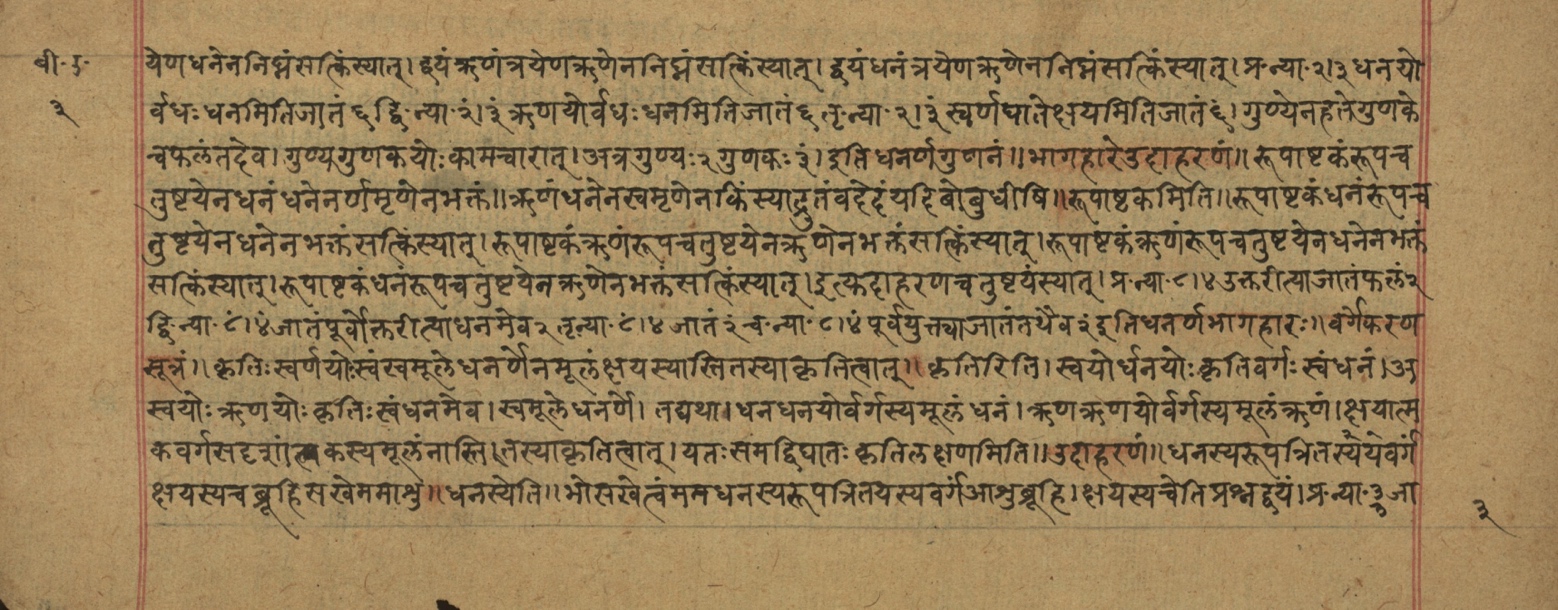 बी॰ ग॰
३
येणधनेननिघ्नंसत्किंस्यात्। द्वयंऋणंत्रयेणऋणेननिघ्नंसत्किंस्यात्। द्वयंधनंत्रयेणऋणेननिघ्नंसत्किंस्यात्। प्र॰न्या॰२।३धनयो
र्वधःधनमितिजातं६द्वि॰न्या॰२ं।३ं ऋणयोर्वधःधनमितिजातं६तृ॰न्या॰२।३ं स्वर्णघातेक्षयमितिजातं६ं। गुण्येनहतेगुणके
चफलंतदेव। गुण्यगुणकयोःकामचारात्। अत्रगुण्यः२गुणकः३ं। इतिधनर्णगुणनं॥ भागहारेउदाहरणं॥ रूपाष्टकंरूपच
तुष्टयेनधनंधनेनर्णमृणेनभक्तं॥ऋणंधनेनस्वमृणेनकिंस्याद्द्रुतंवदेदंयदिबोबुधीषि॥रूपाष्टकमिति॥रूपाष्टकंधनंरूपच
तुष्टयेनधनेनभक्तंसत्किंस्यात्। रूपाष्टकंऋणंरूपचतुष्टयेनऋणेनभक्तंसत्किंस्यात्। रूपाष्टकंऋणंरूपचतुष्टयेनधनेनभक्तं
सत्किंस्यात्। रूपाष्टकंधनंरूपचतुष्टयेनऋणेनभक्तंसत्किंस्यात्। इत्युदाहरणचतुष्टयंस्यात्। प्र॰न्या॰८।४उक्तरीत्याजातंफलं२
द्वि॰न्या॰८ं।४ंजातंपूर्वोक्तरीत्याधनमेव२तृ॰न्या॰८ं।४ जातं२ंच॰न्या॰८।४ं पूर्वयुक्त्याजातंतथैव२ंइतिधनर्णभागहारः॥ वर्गेकरण
सूत्रं॥ कृतिःस्वर्णयोःस्वंस्वमूलेधनर्णेनमूलंक्षयस्यास्तितस्याकृतित्वात्॥ कृतिरिति। स्वयोर्धनयोःकृतिवर्गःस्वंधनं।अ
स्वयोःऋणयोःकृतिःस्वंधनमेव। स्वमूलेधनर्णे। तद्यथा। धनधनयोर्वर्गस्यमूलंधनं। ऋणऋणयोर्वर्गस्यमूलंऋणं। क्षयात्म
कवर्गसदृशांत्मकस्यमूलंनास्ति। तस्याकृतित्वात्। यतःसमद्विघातःकृतिलक्षणमिति॥उदाहरणं॥ धनस्यरूपत्रितस्येयेवर्गं
क्षयस्यचब्रूहिसखेममाशु॥ धनस्येति॥ भोसखेत्वंममधनस्यरूपत्रितयस्यवर्गंआशुब्रूहि। क्षयस्यचेतिप्रश्नद्वयं। प्र॰न्या॰३जा
३